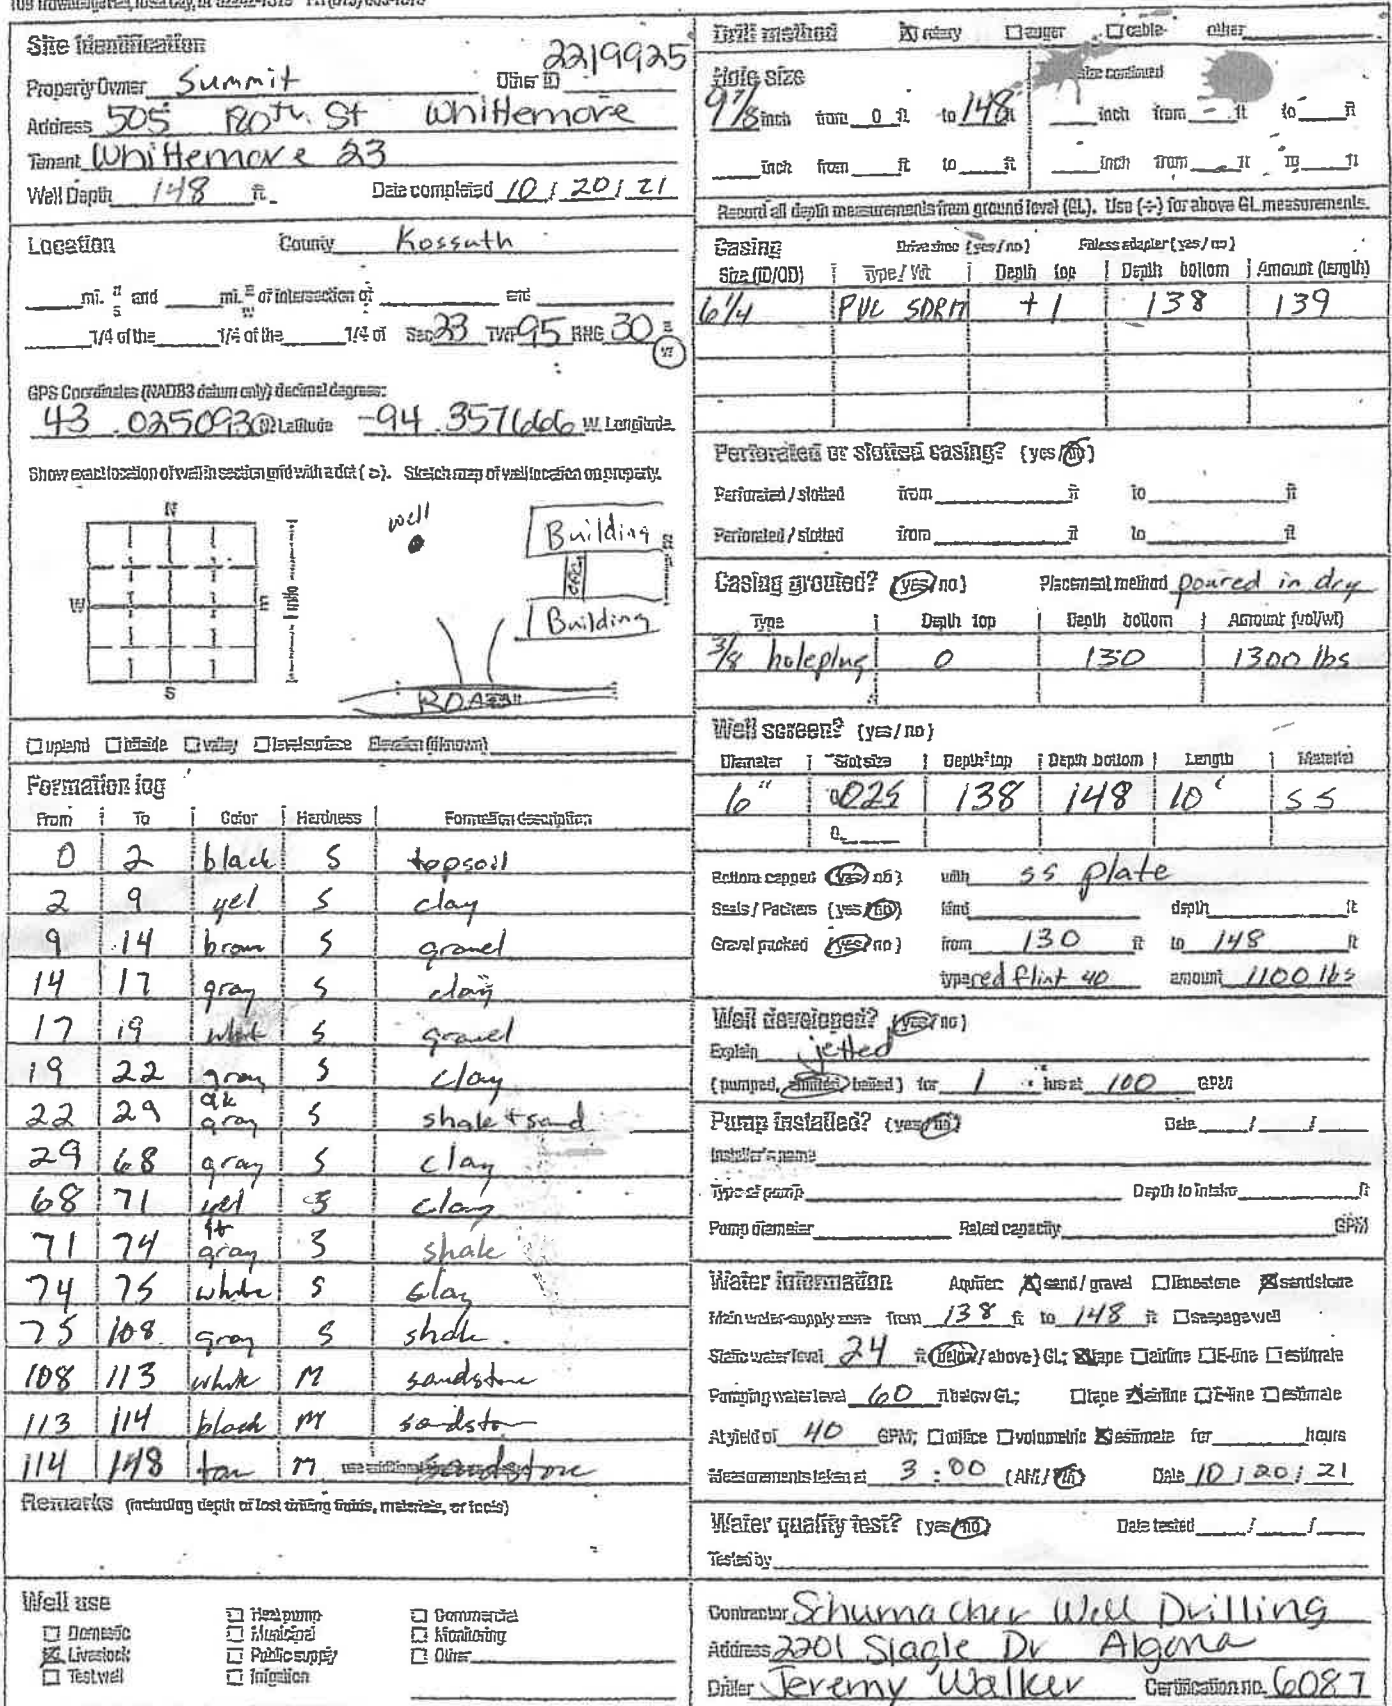 Site identification
2219925
Property Owner Summit Other ID
Address 505 180th St Whittemore
Tenant Whittemore 23
Well Depth 148 ft. Date completed 10 / 20 / 21
Location County Kossuth
mi. N S and mi. E W of intersection of and
1/4 of the 1/4 of the 1/4 of Sec 23 TWP 95 RNG 30 E W
GPS Coordinates (NAD83 datum only) decimal degrees:
43 .025093 N Latitude -94 .3576666 W Longitude
Show exact location of well in section grid with a dot ( o ). Sketch map of well location on property.
N
W E
S
1 mile
well
Building
Building
ROAD
upland hillside valley level surface Elevation (if known)
Formation log
From To Color Hardness Formation description
0 2 black S topsoil
2 9 yel S clay
9 14 brown S gravel
14 17 gray S clay
17 19 S gravel
19 22 gray S clay
22 29 dk gray S shale + sand
29 68 gray S clay
68 71 yel S clay
71 74 lt gray S shale
74 75 white S clay
75 108 gray S shale
108 113 white M sandstone
113 114 black M sandston
114 148 tan M sandstone
Remarks (including depth of lost drilling fluids, materials, or tools)
Well use
Domestic
Livestock
Test well
Heat pump
Municipal
Public supply
Irrigation
Commercial
Monitoring
Other
Drill method rotary auger cable other
Hole size size continued
9 7/8 inch from 0 ft to 148 ft inch from ft to ft
inch from ft to ft inch from ft to ft
Record all depth measurements from ground level (GL). Use (+) for above GL measurements.
Casing Drive shoe (yes / no) Pitless adapter (yes / no)
Size (ID/OD) Type / Wt Depth top Depth bottom Amount (length)
6 1/4 PVC +1 138 139
Perforated or slotted casing? (yes / no)
Perforated / slotted from ft to ft
Perforated / slotted from ft to ft
Casing grouted? (yes / no) Placement method poured in dry
Type Depth top Depth bottom Amount (vol/wt)
3/8 holeplug 0 130 1300 lbs
Well screen? (yes / no)
Diameter Slot size Depth top Depth bottom Length Material
6" 0.025 138 148 10' SS
0.
Bottom capped (yes / no) with ss plate
Seals / Packers (yes / no) kind depth ft
Gravel packed (yes / no) from 130 ft to 148 ft
type red flint 40 amount 1100 lbs
Well developed? (yes / no)
Explain jetted
(pumped, airlifted, bailed) for 1 hrs at 100 GPM
Pump installed? (yes / no) Date / /
Installer's name
Type of pump Depth to intake ft
Pump diameter Rated capacity GPM
Water information Aquifer: sand / gravel limestone sandstone
Main water-supply zone from 138 ft to 148 ft seepage well
Static water level 24 ft (below / above) GL; tape airline E-line estimate
Pumping water level 60 ft below GL; tape airline E-line estimate
At yield of 40 GPM; orifice volumetric estimate for hours
Measurements taken at 3 : 00 (AM / PM) Date 10 / 20 / 21
Water quality test? (yes / no) Date tested / /
Tested by
Contractor Schumacher Well Drilling
Address 2201 Slagle Dr Algona
Driller Jeremy Walker Certification no. 6087